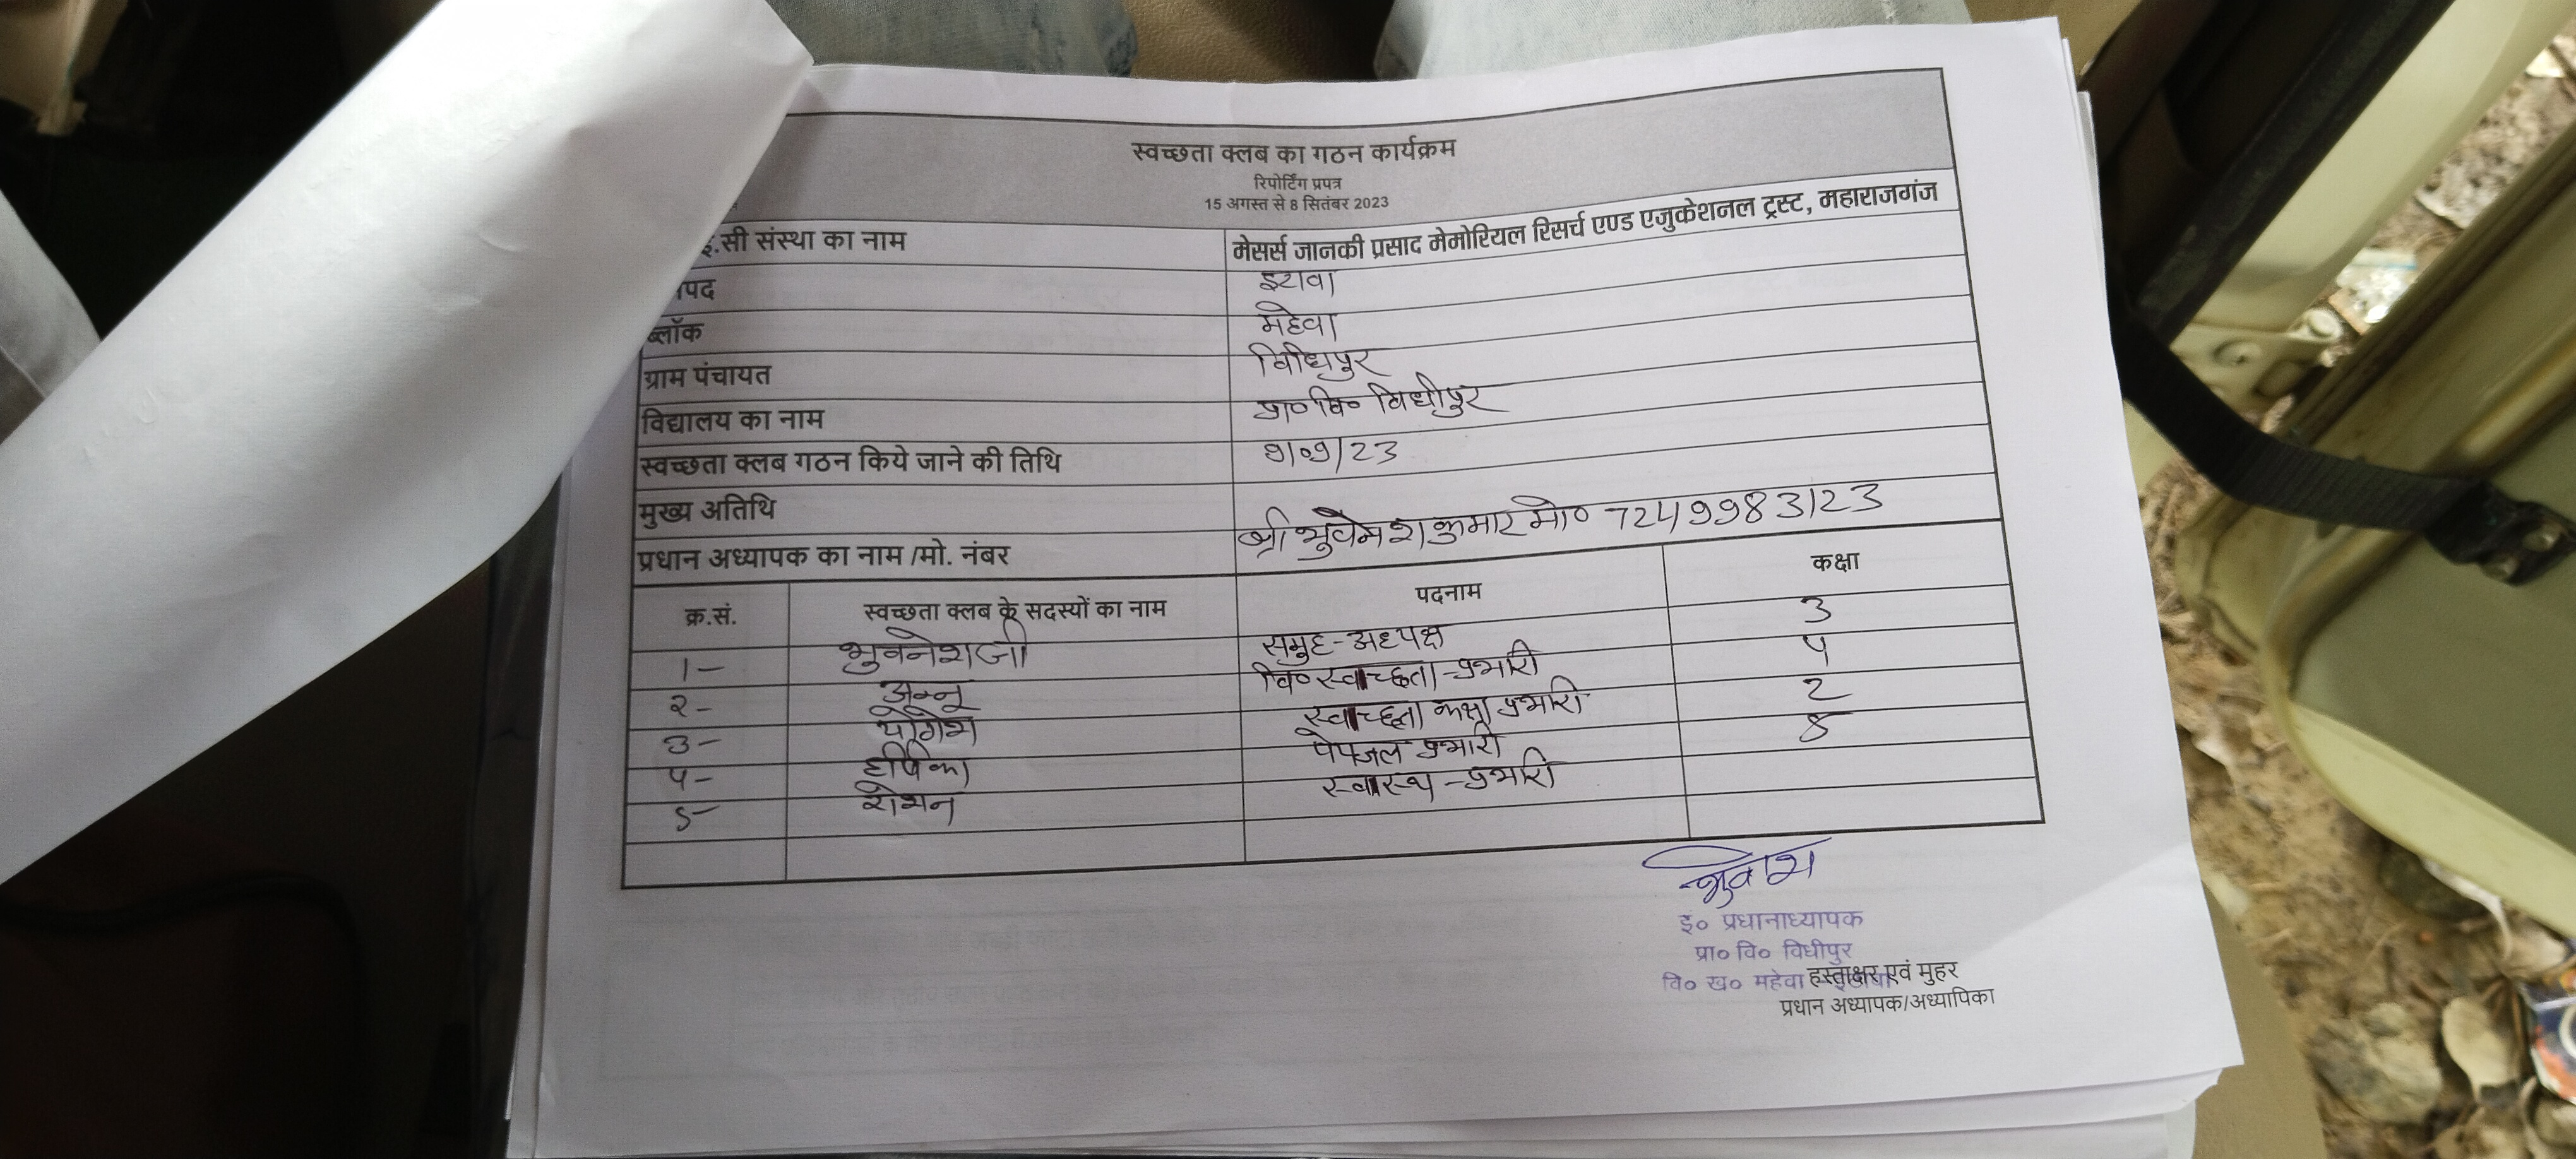 स्वच्छता क्लब का गठन कार्यक्रम
रिपोर्टिंग प्रपत्र
15 अगस्त से 8 सितंबर 2023
इ.सी संस्था का नाम मेसर्स जानकी प्रसाद मेमोरियल रिसर्च एण्ड एजुकेशनल ट्रस्ट, महाराजगंज
पद इटावा
ब्लॉक महेवा
ग्राम पंचायत विधिपुर
विद्यालय का नाम प्रा० वि० विधीपुर
स्वच्छता क्लब गठन किये जाने की तिथि 9/09/23
मुख्य अतिथि
प्रधान अध्यापक का नाम /मो. नंबर श्री भुवनेश कुमार मो०
क्र.सं. स्वच्छता क्लब के सदस्यों का नाम पदनाम कक्षा
1- भुवनेशजी समुह-अध्यक्ष
२- अन्नू वि० स्वाच्छता-प्रभारी 3
3- योगेश स्वाच्छता कक्षा प्रभारी 4
4- दीपिका पेयजल प्रभारी 2
5- रोशन स्वास्थ-प्रभारी 5
इ० प्रधानाध्यापक
प्रा० वि० विधीपुर
वि० ख० महेवा
हस्ताक्षर एवं मुहर
प्रधान अध्यापक/अध्यापिका